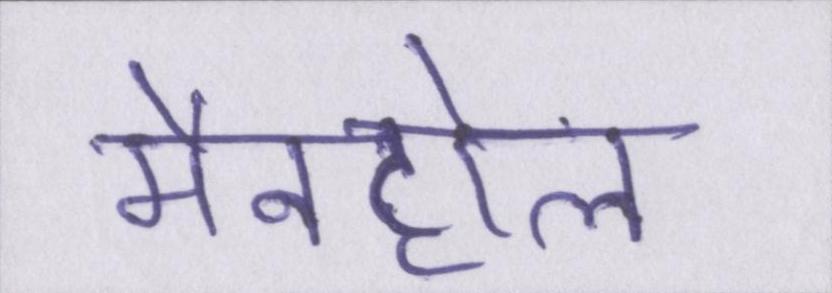 मैनहोल